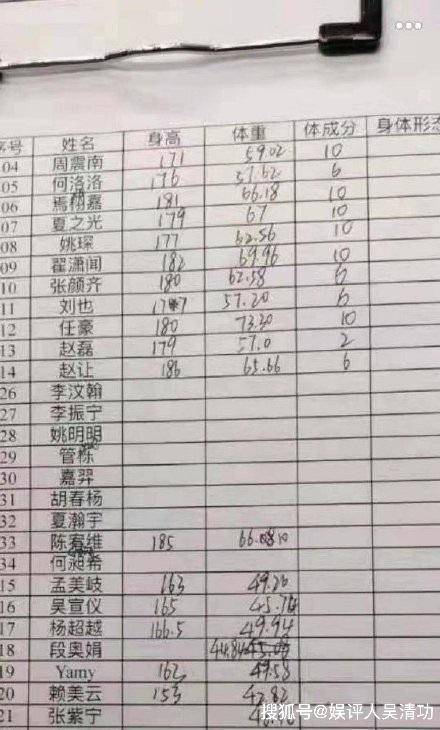 序号 姓名 身高 体重 体成分 身体形态
04 周震南 171 59.02 10
05 何洛洛 176 57.62 6
06 焉栩嘉 181 66.18 10
07 夏之光 179 67 10
08 姚琛 177 62.56 10
09 翟潇闻 182 69.96 10
10 张颜齐 180 62.58 6
11 刘也 177 57.20 6
12 任豪 180 73.30 10
13 赵磊 179 57.0 2
14 赵让 186 65.66 6
26 李汶翰
27 李振宁
28 姚明明
29 管栎
30 嘉羿
31 胡春杨
32 夏瀚宇
33 陈宥维 185 66.08 10
34 何昶希
15 孟美岐 163 49.20
16 吴宣仪 165 45.74
17 杨超越 166.5 49.94
18 段奥娟 44.84
19 Yamy 162 49.58
20 赖美云 153 42.82
21 张紫宁
搜狐号@娱评人吴清功